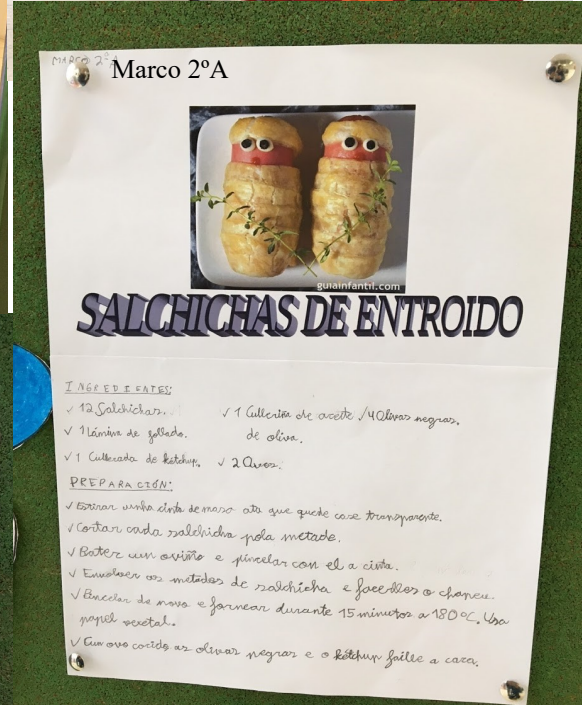 MARCO 2ºA
Marco 2ºA
guiainfantil.com
SALCHICHAS DE ENTROIDO
INGREDIENTES:
✓ 12 Salchichas.
✓ 1 Lámina de follado.
✓ 1 Cullerada de kétchup.
✓ 1 Culleriña de aceite
de oliva.
✓ 4 Olivas negras.
✓ 2 Ovos.
PREPARACIÓN:
✓ Estirar unha cinta de masa ata que quede case transparente.
✓ Cortar cada salchicha pola metade.
✓ Bater un oviño e pincelar con el a cinta.
✓ Envolver as metades de salchicha e facerlles o chapeu.
✓ Pincelar de novo e fornear durante 15 minutos a 180ºC. Usa
papel vexetal.
✓ Cun ovo cocido as olivas negras e o kétchup faille a cara.